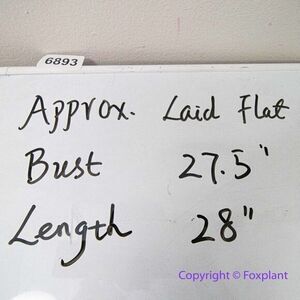 6893
Approx. Laid Flat
Bust 27.5"
Length 28"
Copyright © Foxplant